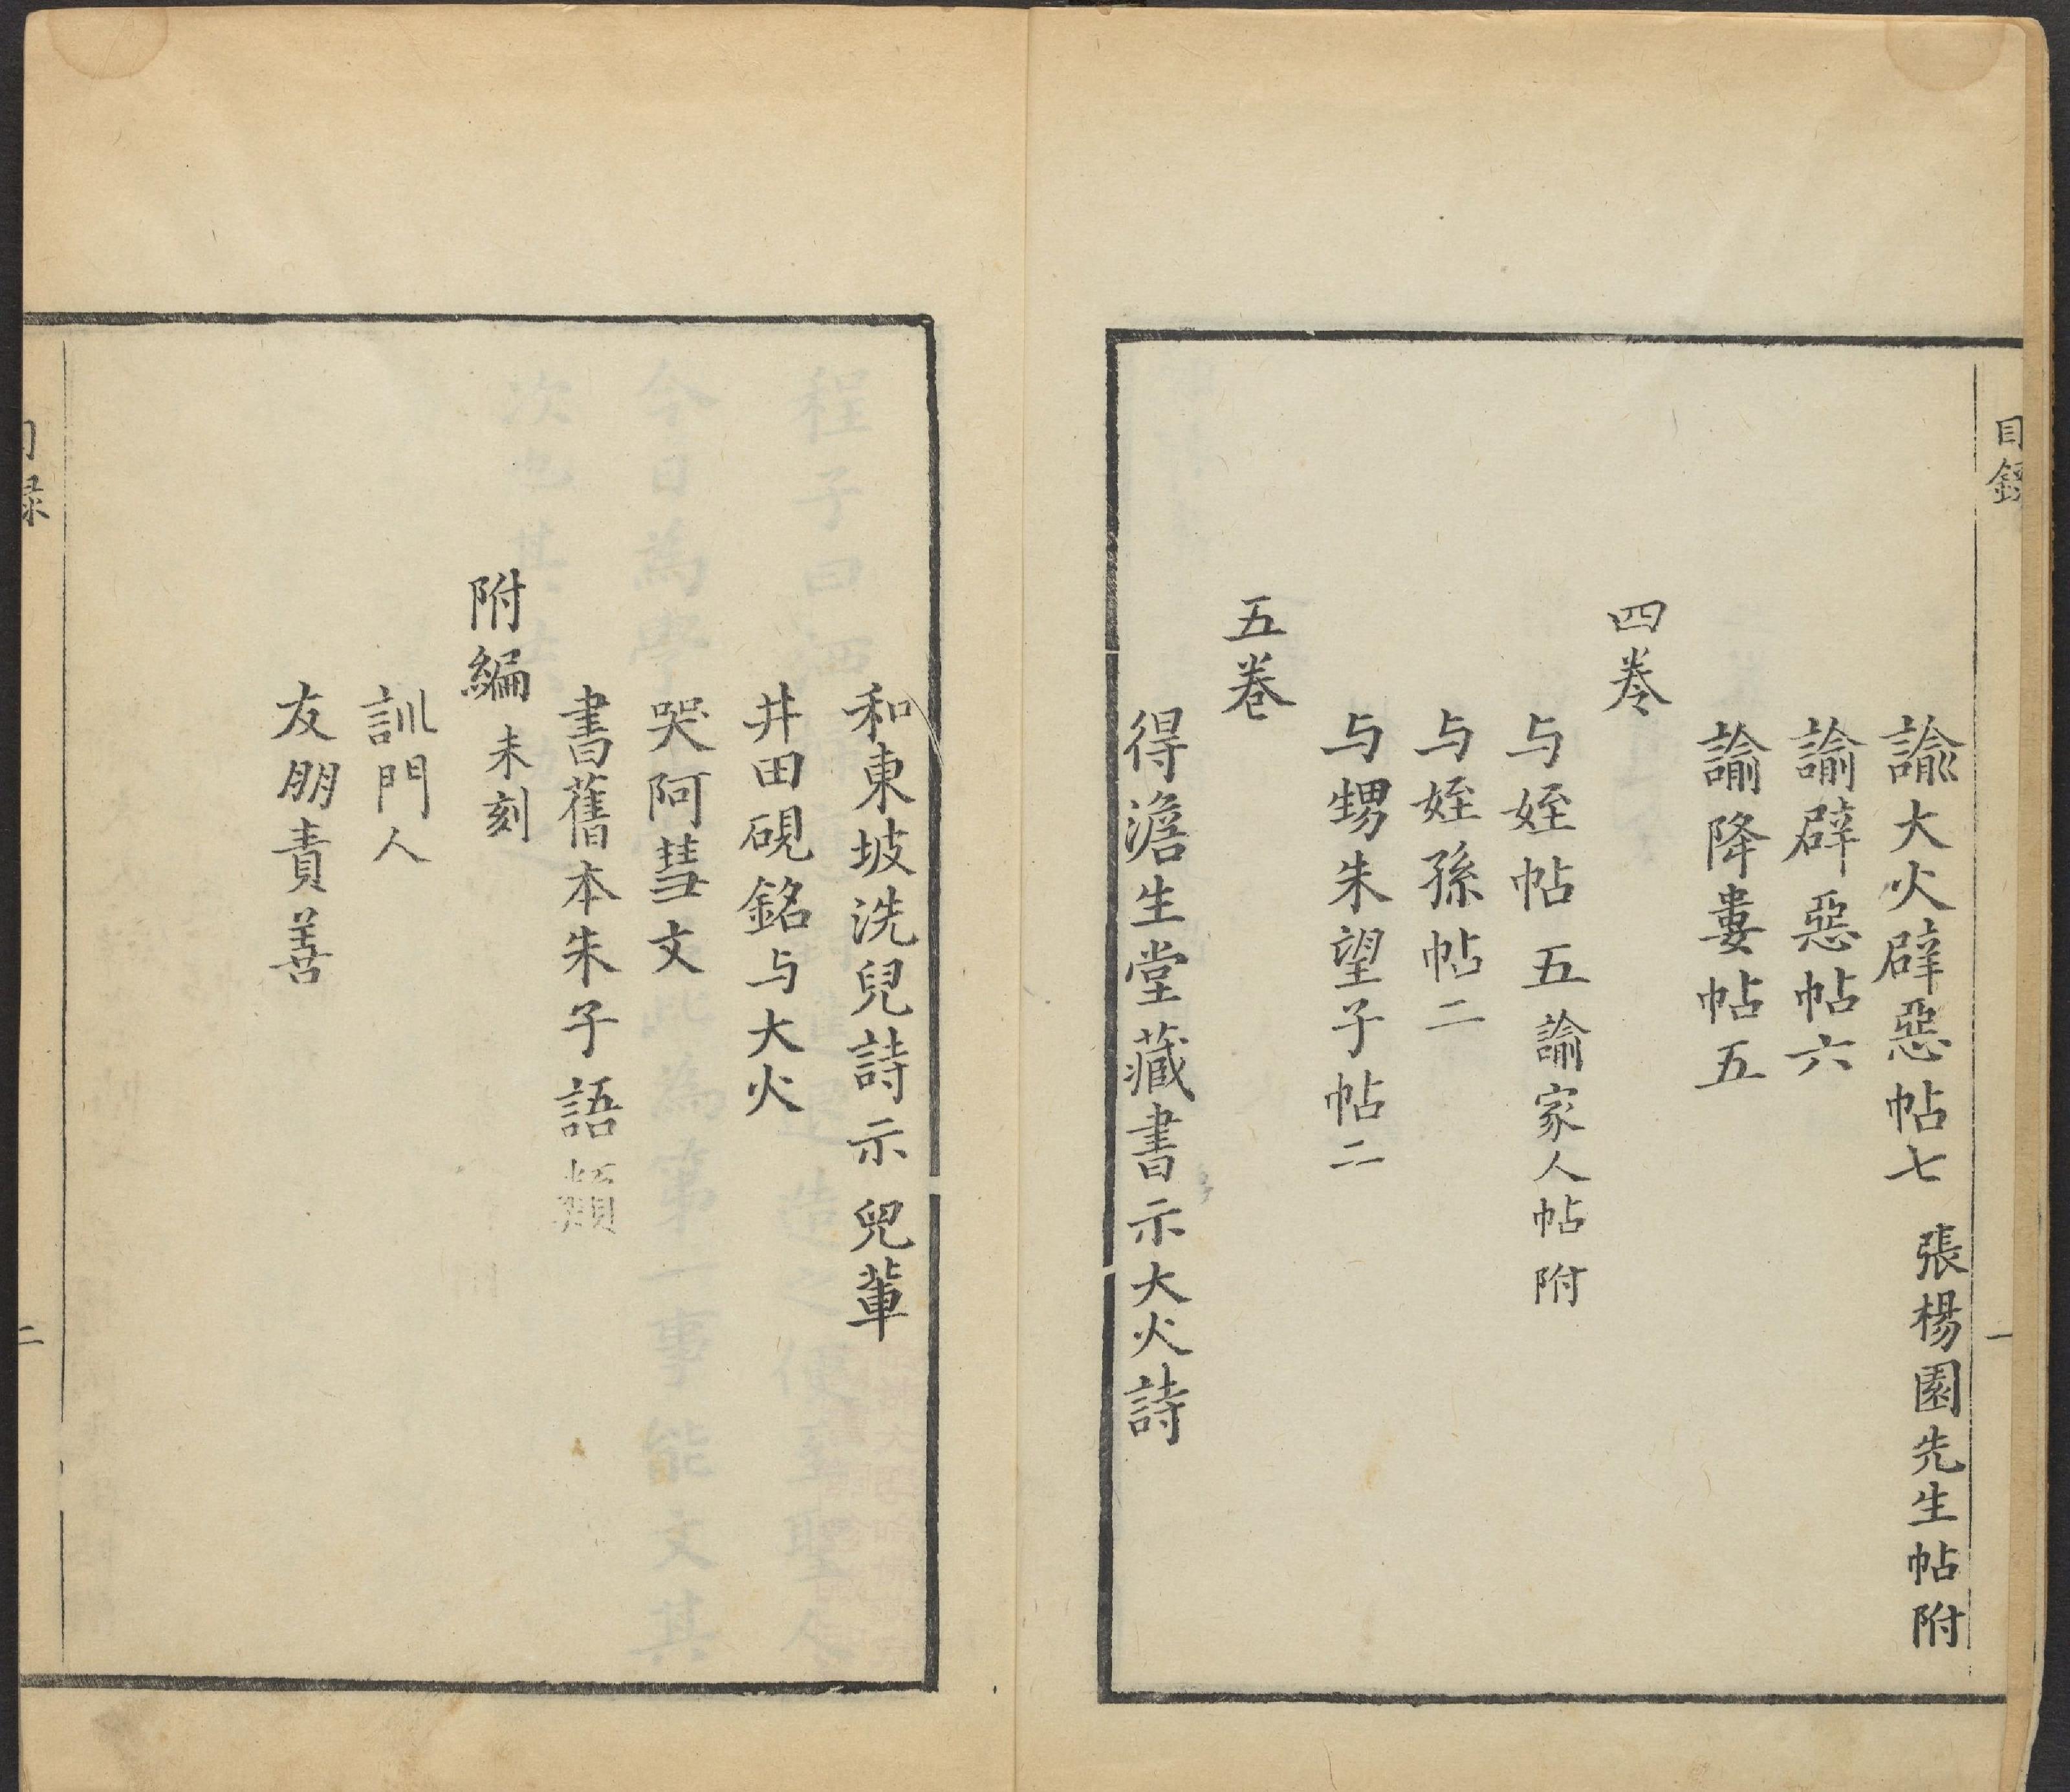 目錄
一
諭大火辟惡帖七 張楊園先生帖附
諭辟惡帖六
諭降婁帖五
四卷
与姪帖五 諭家人帖附
与姪孫帖二
与甥朱望子帖二
五卷
得澹生堂藏書示大火詩
和東坡洗兒詩示兒輩
井田硯銘与大火
哭阿彗文
書舊本朱子語類
附編 未刻
訓門人
友朋責善
目録
二